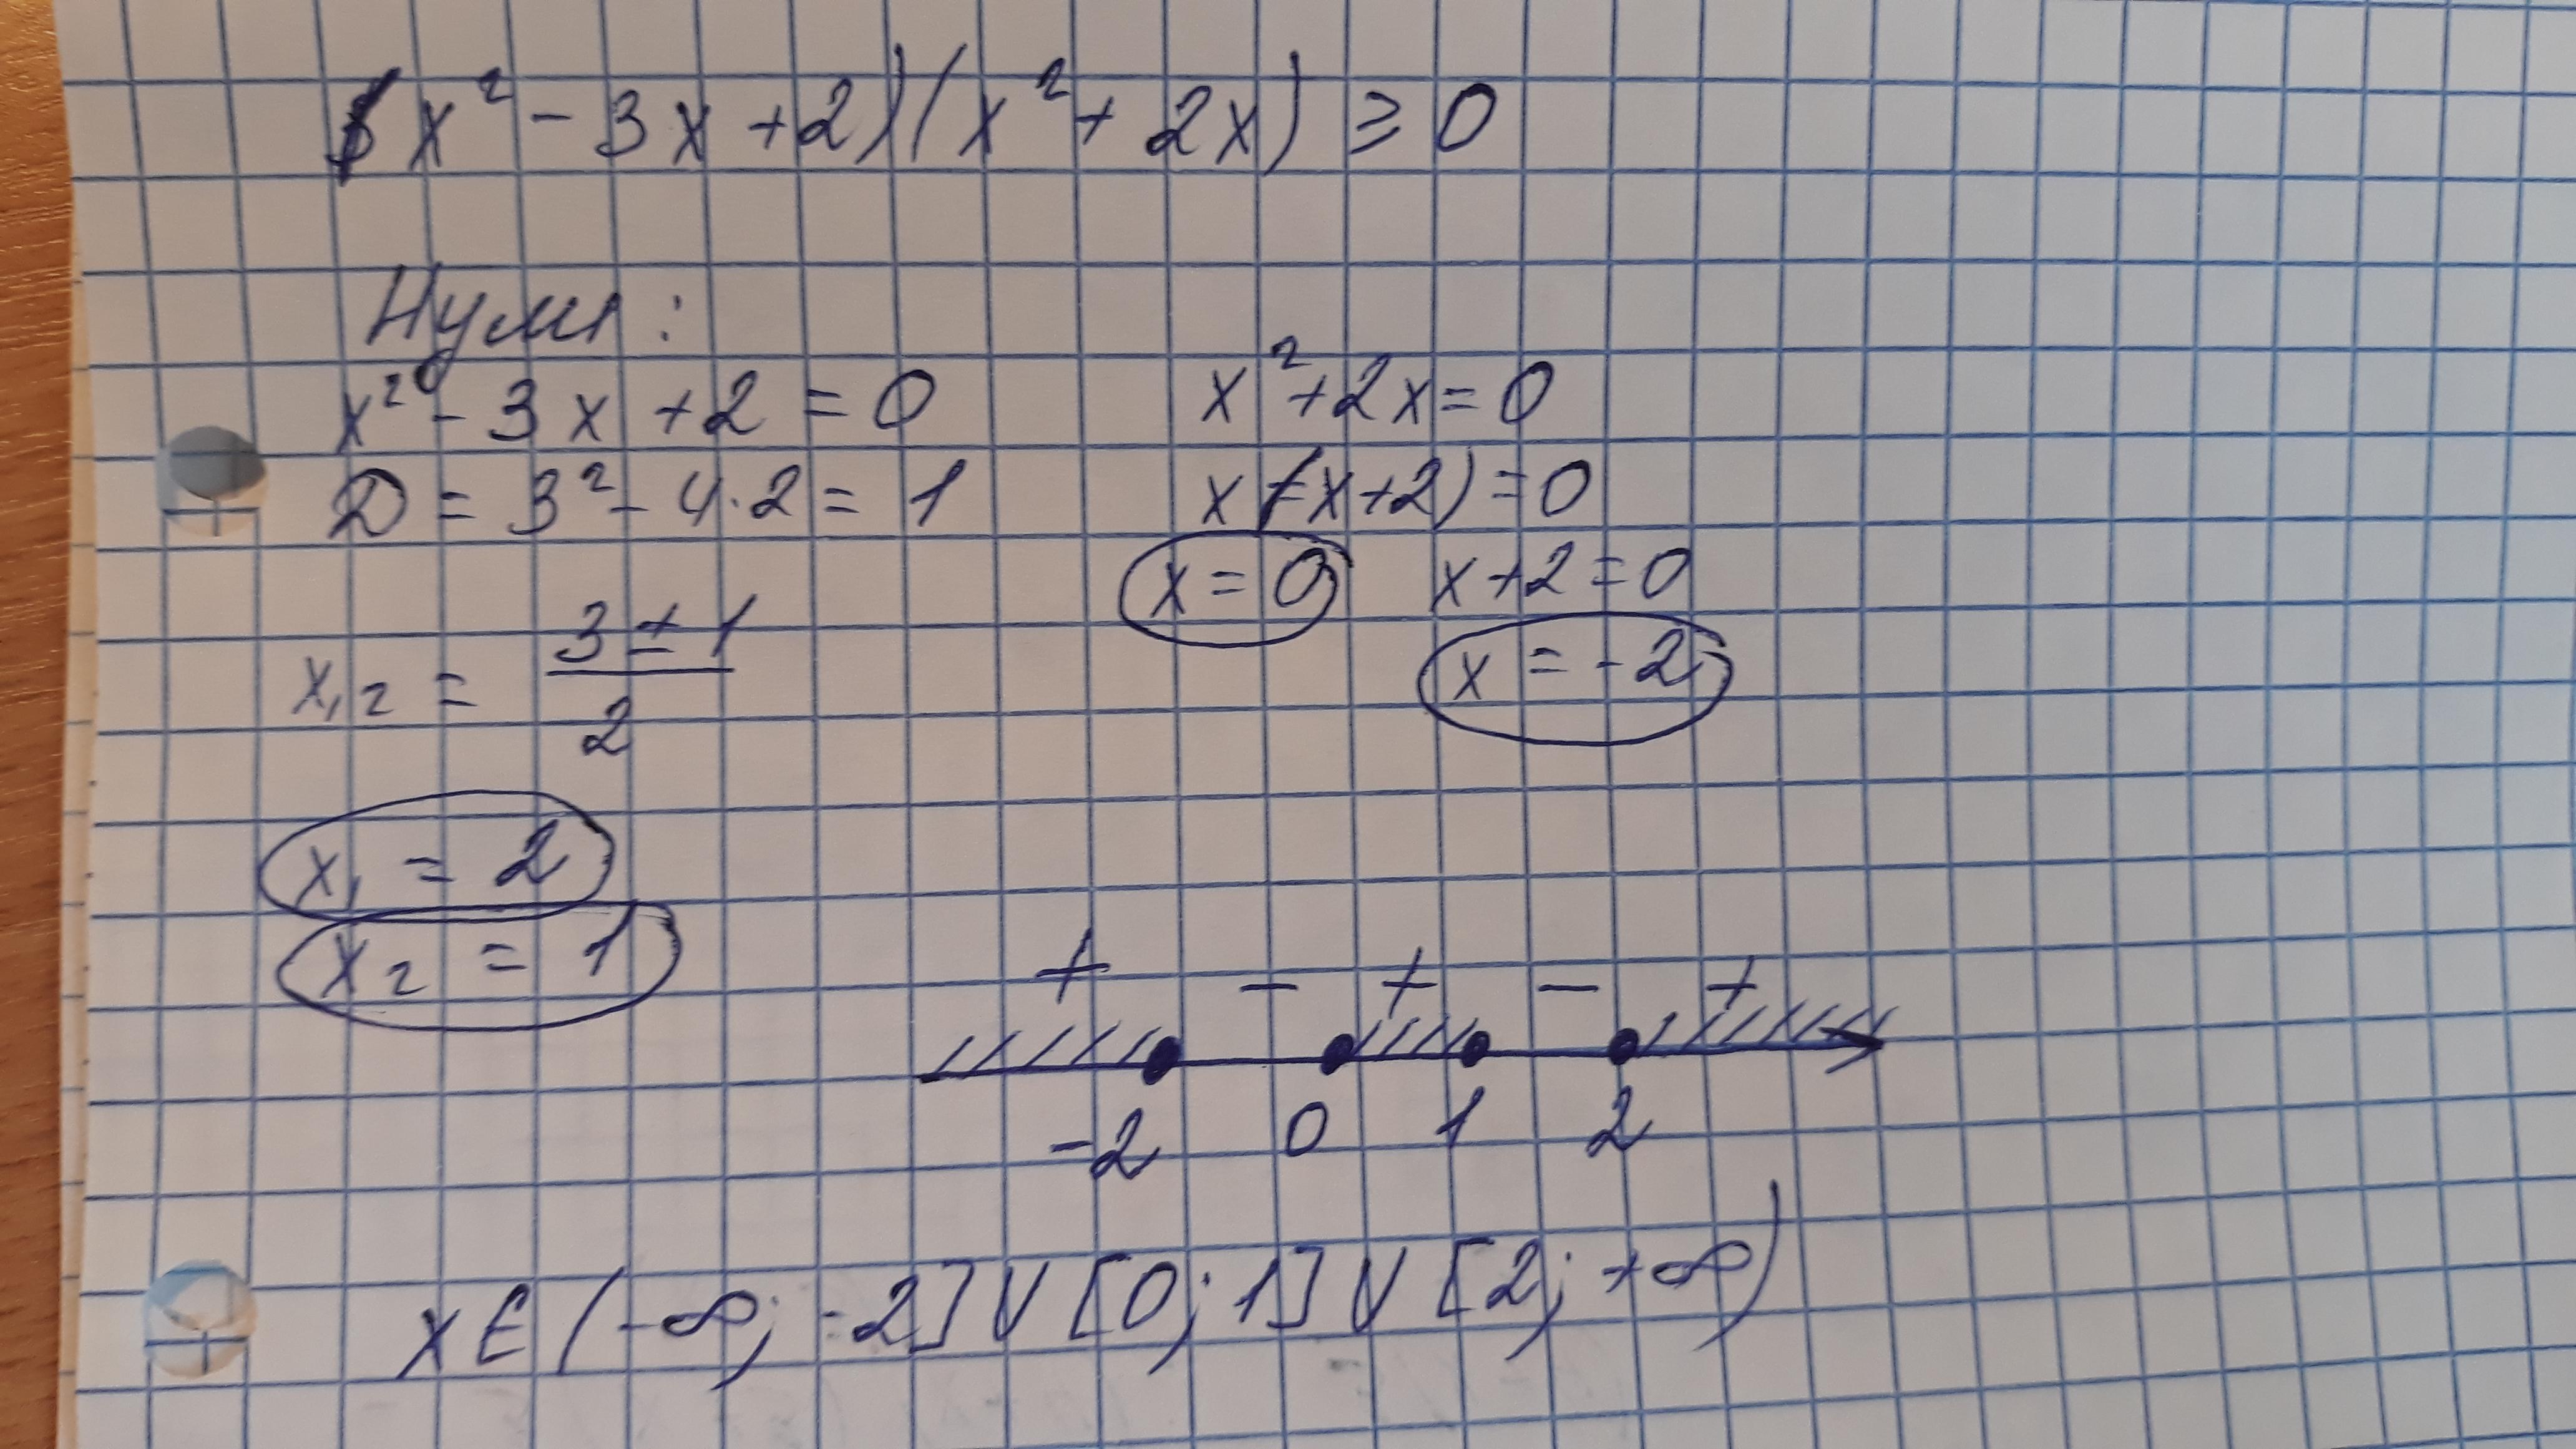 (x² - 3x + 2)(x² + 2x) ≥ 0
Нули:
x² - 3x + 2 = 0
D = 3² - 4·2 = 1
x₁,₂ = (3 ± 1)/2
x₁ = 2
x₂ = 1
x² + 2x = 0
x(x+2) = 0
x = 0 x+2 = 0
x = -2
+ - + - +
-2 0 1 2
x ∈ (-∞; -2] ∪ [0; 1] ∪ [2; +∞)